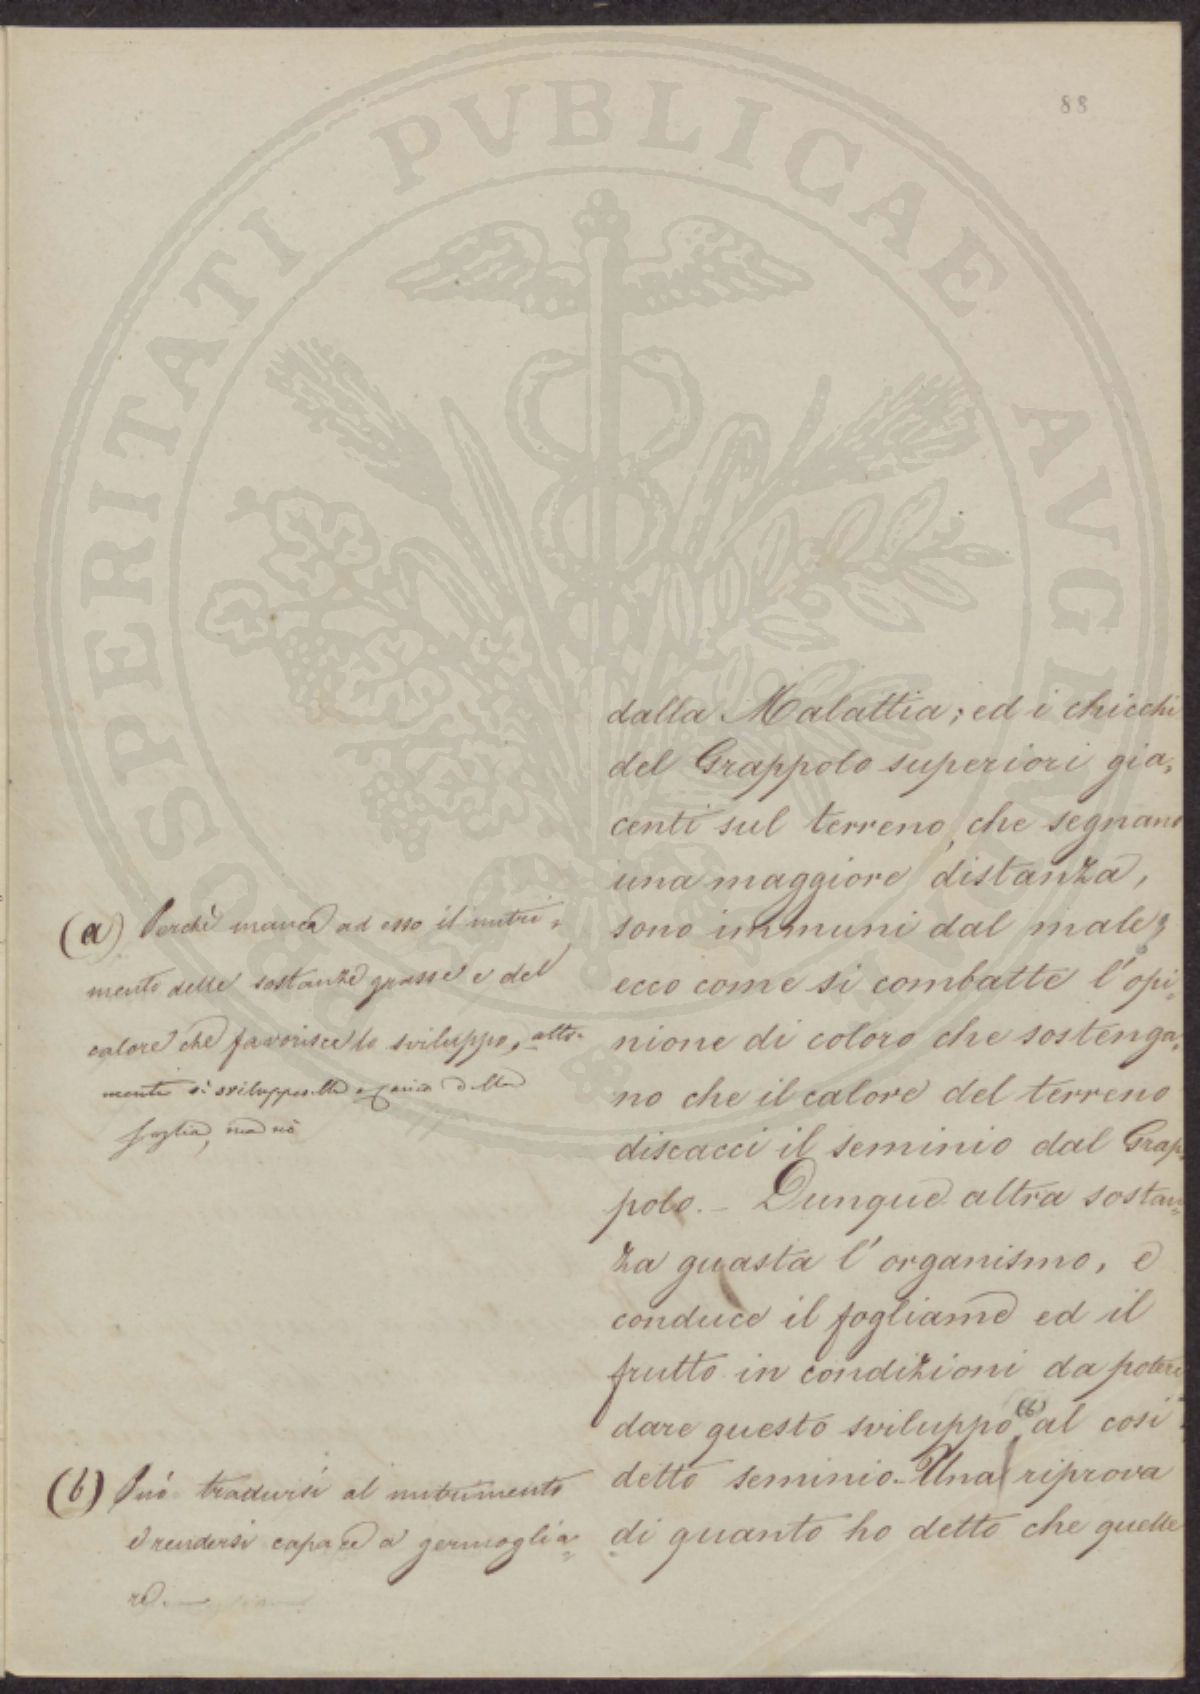 88
PROSPERITATI PUBLICAE AVGENDAE
dalla Malattia; ed i chicchi
del Grappolo superiori gia,
centi sul terreno, che segnano
una maggiore distanza,
sono immuni dal male;
ecco come si combatte l'opi-
nione di coloro che sostenga,
no che il calore del terreno
discacci il seminio dal Grap,
polo. – Dunque altra sostan,
za guasta l'organismo, e
conduce il fogliame ed il
frutto in condizioni da poter
dare questo sviluppo (b) al cosi
detto seminio. Una riprova
di quanto ho detto che quelle
(a) Perchè manca ad esso il nutri,
mento delle sostanze grasse e del
calore che favorisce lo sviluppo, altri-
mente si svilupperebbe a carico della
foglia, ma nò
(b) Può tradursi al nutrimento
e rendersi capace a germoglia,
re. —